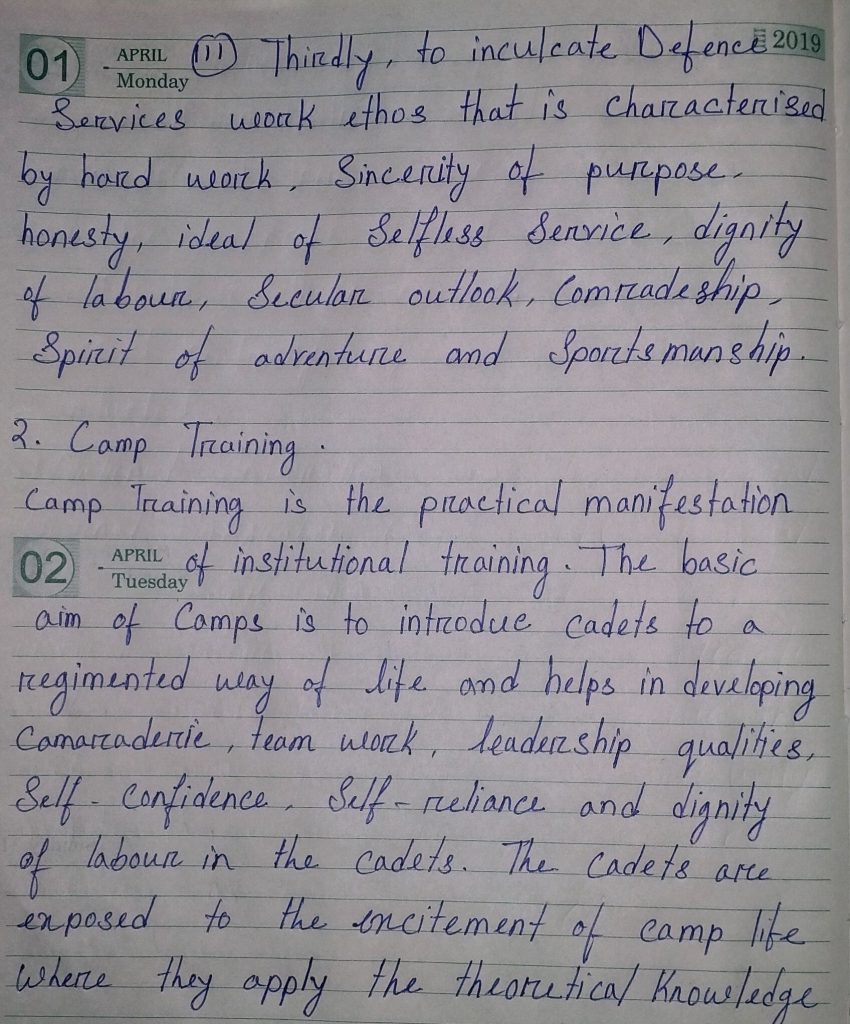 01 APRIL Monday (III) Thirdly, to inculcate Defence 2019
Services work ethos that is characterised
by hard work, Sincerity of purpose,
honesty, ideal of Selfless Service, dignity
of labour, Secular outlook, Comradeship,
Spirit of adventure and Sportsmanship.
2. Camp Training.
Camp Training is the practical manifestation
02 APRIL Tuesday of institutional training. The basic
aim of Camps is to introdue cadets to a
regimented way of life and helps in developing
Camaraderie, team work, leadership qualities,
Self-Confidence, Self-reliance and dignity
of labour in the cadets. The cadets are
exposed to the excitement of camp life
where they apply the theoretical Knowledge